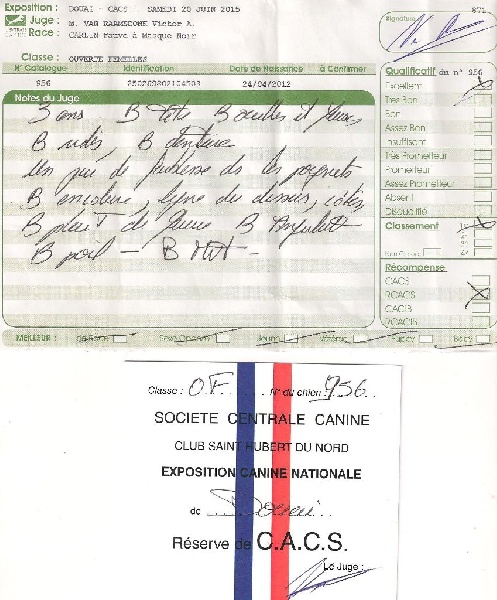 Exposition : DOUAI - CACS SAMEDI 20 JUIN 2015
Juge : M. VAN RAEMDONK Victor A.
Race : CARLIN Fauve à Masque Noir
Classe : OUVERTE FEMELLES
N° Catalogue Identification Date de Naissance à Confirmer
956 24/04/2012
Notes du Juge
3 ans, B tête B oreilles et yeux
B rides, B denture
Un peu de faiblesse ds les poignets
B encolure, ligne du dessus, côtes
B port de queue B
B poil -
Signature
Qualificatif du n° 956
Excellent
Très Bon
Bon
Assez Bon
Insuffisant
Très Prometteur
Prometteur
Assez Prometteur
Absent
Disqualifié
Classement
Non Classé
Récompense
CACS
RCACS
CACIB
RCACIB
MEILLEUR : de Race Sexe Opposé Jeune Vétéran Puppy Baby
Classe : OF N° du chien : 956
SOCIETE CENTRALE CANINE
CLUB SAINT HUBERT DU NORD
EXPOSITION CANINE NATIONALE
de Douai
Réserve de C.A.C.S.
Le Juge :